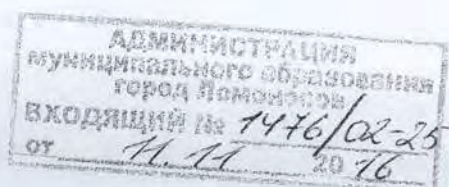 АДМИНИСТРАЦИЯ
муниципального образования
город Ломоносов
ВХОДЯЩИЙ № 1476/02-25
от 11.11 2016